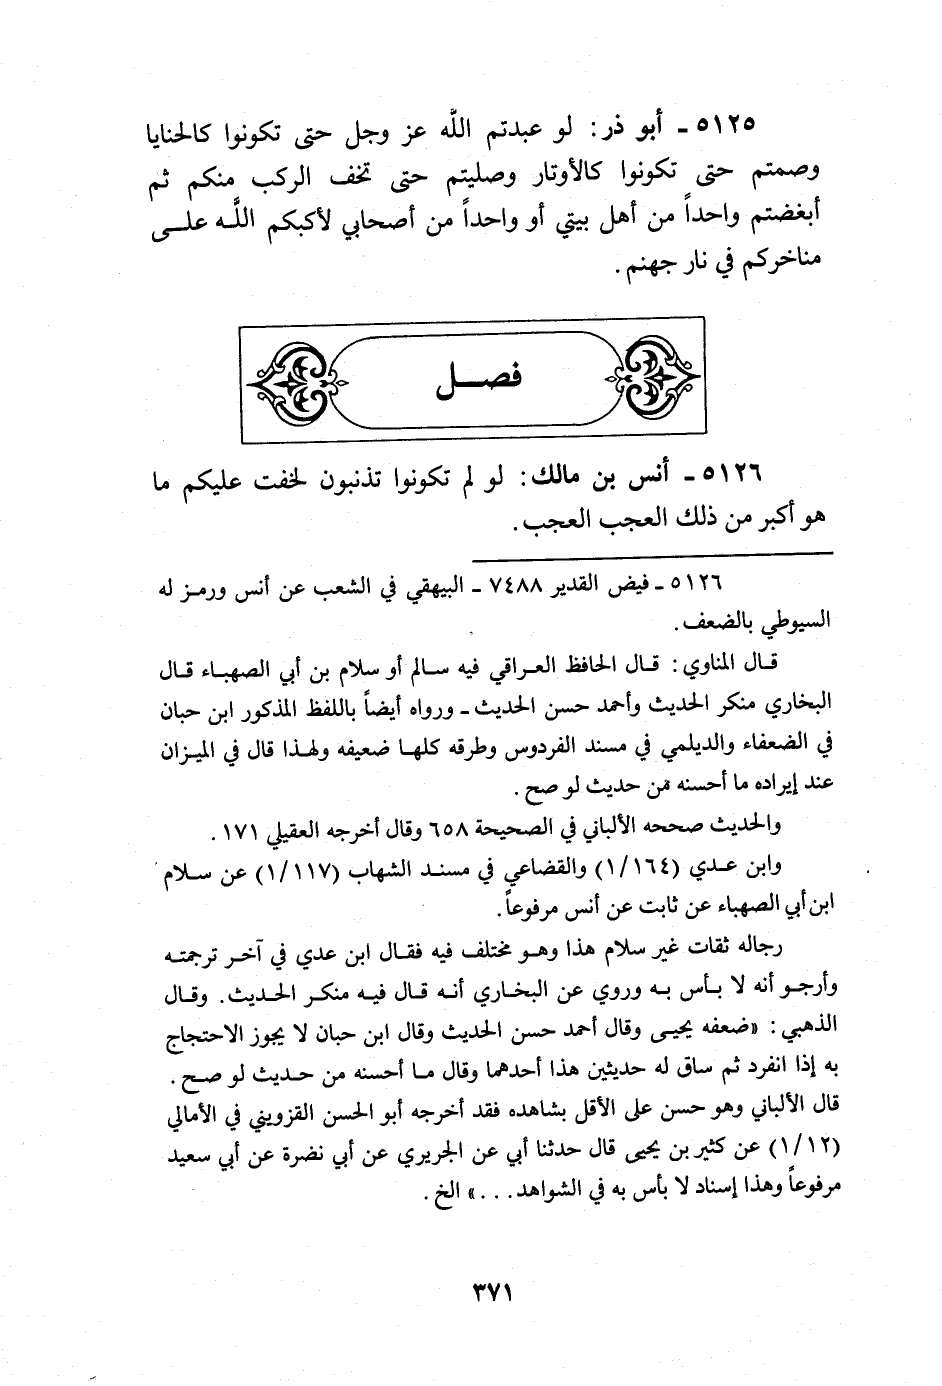 ٥١٢٥ ـ أبو ذر: لو عبدتم اللَّه عز وجل حتى تكونوا كالحنايا
وصمتم حتى تكونوا كالأوتار وصليتم حتى تخف الركب منكم ثم
أبغضتم واحداً من أهل بيتي أو واحداً من أصحابي لأكبكم اللَّه على
مناخركم في نار جهنم.
فصل
٥١٢٦ ـ أنس بن مالك: لو لم تكونوا تذنبون لخفت عليكم ما
هو أكبر من ذلك العجب العجب.
٥١٢٦ ـ فيض القدير ٧٤٨٨ ـ البيهقي في الشعب عن أنس ورمز له
السيوطي بالضعف.
قال المناوي: قال الحافظ العراقي فيه سالم أو سلام بن أبي الصهباء قال
البخاري منكر الحديث وأحمد حسن الحديث ـ ورواه أيضاً باللفظ المذكور ابن حبان
في الضعفاء والديلمي في مسند الفردوس وطرقه كلها ضعيفه ولهذا قال في الميزان
عند إيراده ما أحسنه من حديث لو صح.
والحديث صححه الألباني في الصحيحة ٦٥٨ وقال أخرجه العقيلي ١٧١.
وابن عدي (١/١٦٤) والقضاعي في مسند الشهاب (١/١١٧) عن سلام
ابن أبي الصهباء عن ثابت عن أنس مرفوعاً.
رجاله ثقات غير سلام هذا وهو مختلف فيه فقال ابن عدي في آخر ترجمته
وأرجو أنه لا بأس به وروي عن البخاري أنه قال فيه منكر الحديث. وقال
الذهبي: «ضعفه يحيى وقال أحمد حسن الحديث وقال ابن حبان لا يجوز الاحتجاج
به إذا انفرد ثم ساق له حديثين هذا أحدهما وقال ما أحسنه من حديث لو صح.
قال الألباني وهو حسن على الأقل بشاهده فقد أخرجه أبو الحسن القزويني في الأمالي
(١/١٢) عن كثير بن يحيى قال حدثنا أبي عن الجريري عن أبي نضرة عن أبي سعيد
مرفوعاً وهذا إسناد لا بأس به في الشواهد...» الخ.
٣٧١